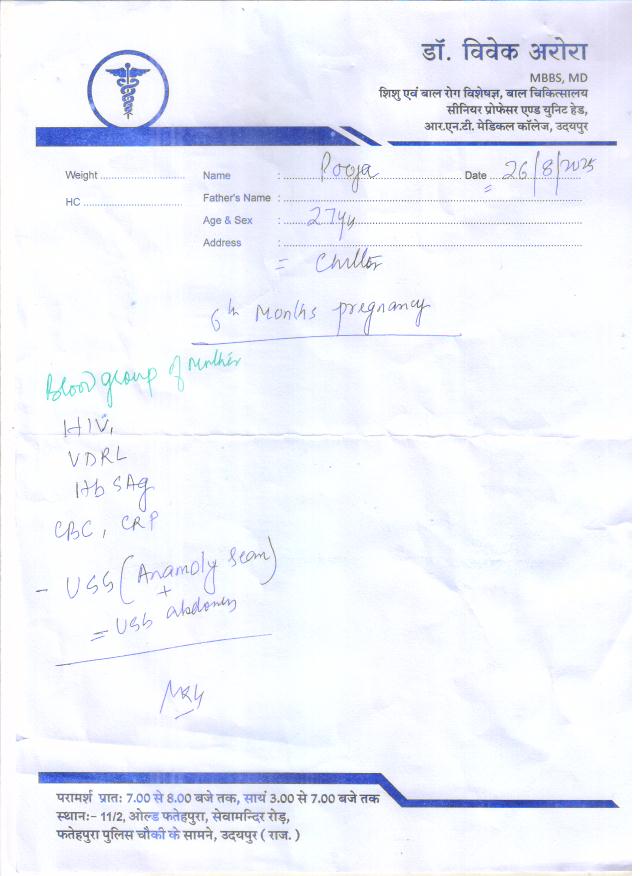 डॉ. विवेक अरोरा
MBBS, MD
शिशु एवं बाल रोग विशेषज्ञ, बाल चिकित्सालय
सीनियर प्रोफेसर एण्ड युनिट हेड,
आर.एन.टी. मेडिकल कॉलेज, उदयपुर
Weight
Name : Pooja
Date 26/8/2025
HC
Father's Name :
Age & Sex : 27yy
Address :
6th Months pregnancy
Blood group of Mother
HIV,
VDRL
Hb SAg
CBC, CRP
- USS (Anamoly Scan)
+
= USS abdomen
परामर्श प्रात: 7.00 से 8.00 बजे तक, सायं 3.00 से 7.00 बजे तक
स्थान:- 11/2, ओल्ड फतेहपुरा, सेवामन्दिर रोड़,
फतेहपुरा पुलिस चौकी के सामने, उदयपुर ( राज. )